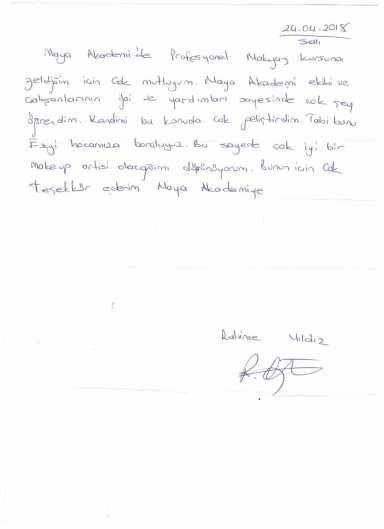 24.04.2018
Salı
Maya Akademi'de Profesyonel Makyaj kursuna
geldiğim için çok mutluyum. Maya Akademi ekibi ve
çalışanlarının ilgi ve yardımları sayesinde çok şey
öğrendim. Kendimi bu konuda çok geliştirdim. Tabi bunu
Ezgi hocamıza borçluyuz. Bu sayede çok iyi bir
makeup artisi olacağımı düşünüyorum. Bunun için çok
teşekkür ederim Maya Akademiye
Yıldız